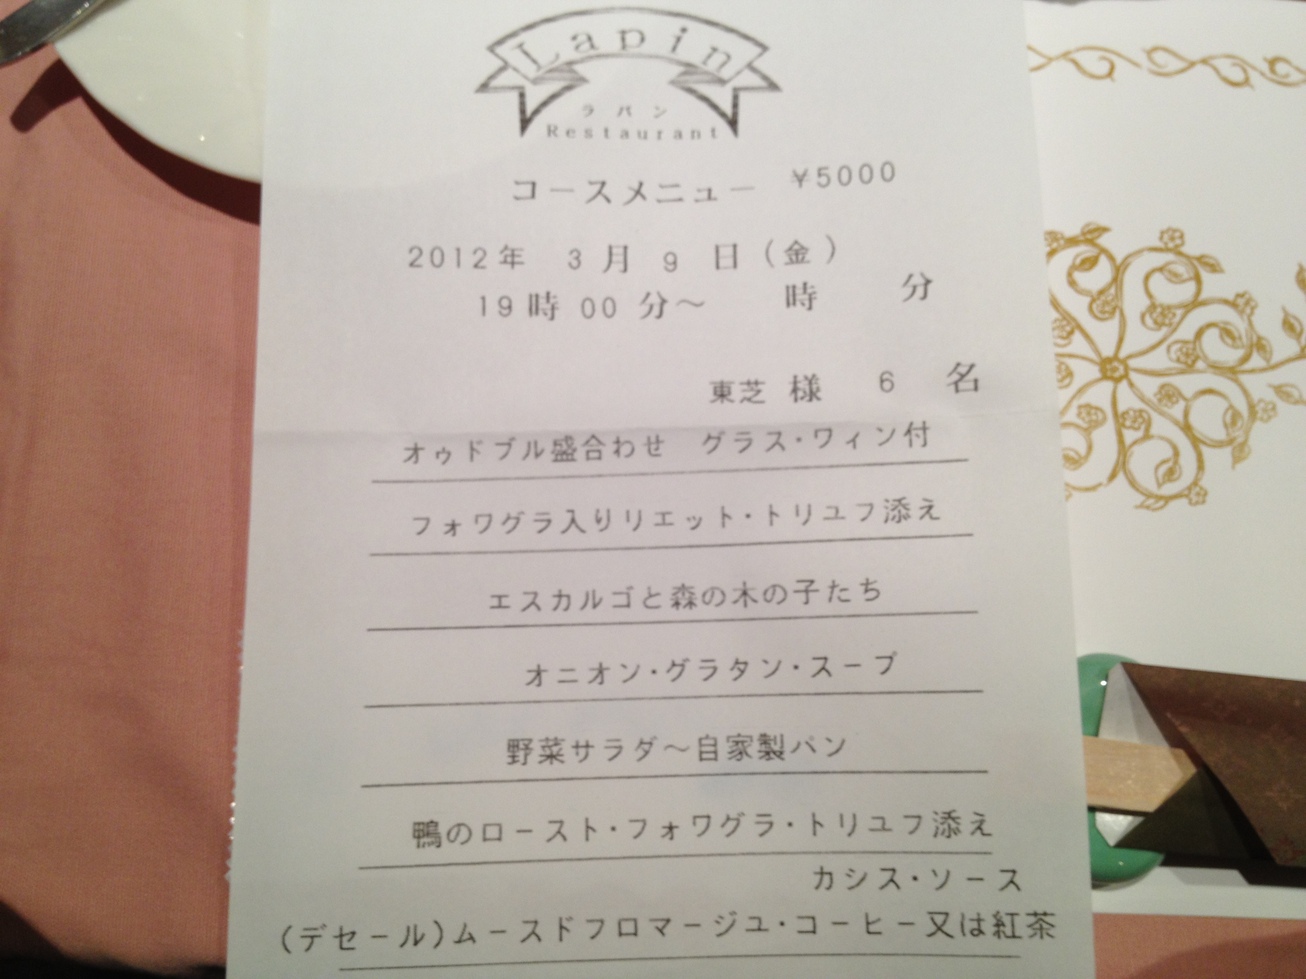 Lapin
ラパン
Restaurant
コースメニュー ¥5000
2012年 3月 9日(金)
19時00分～ 時 分
東芝 様 6 名
オゥドブル盛合わせ グラス・ワィン付
フォワグラ入りリエット・トリユフ添え
エスカルゴと森の木の子たち
オニオン・グラタン・スープ
野菜サラダ～自家製パン
鴨のロースト・フォワグラ・トリユフ添え
カシス・ソース
(デセール)ムースドフロマージユ・コーヒー又は紅茶